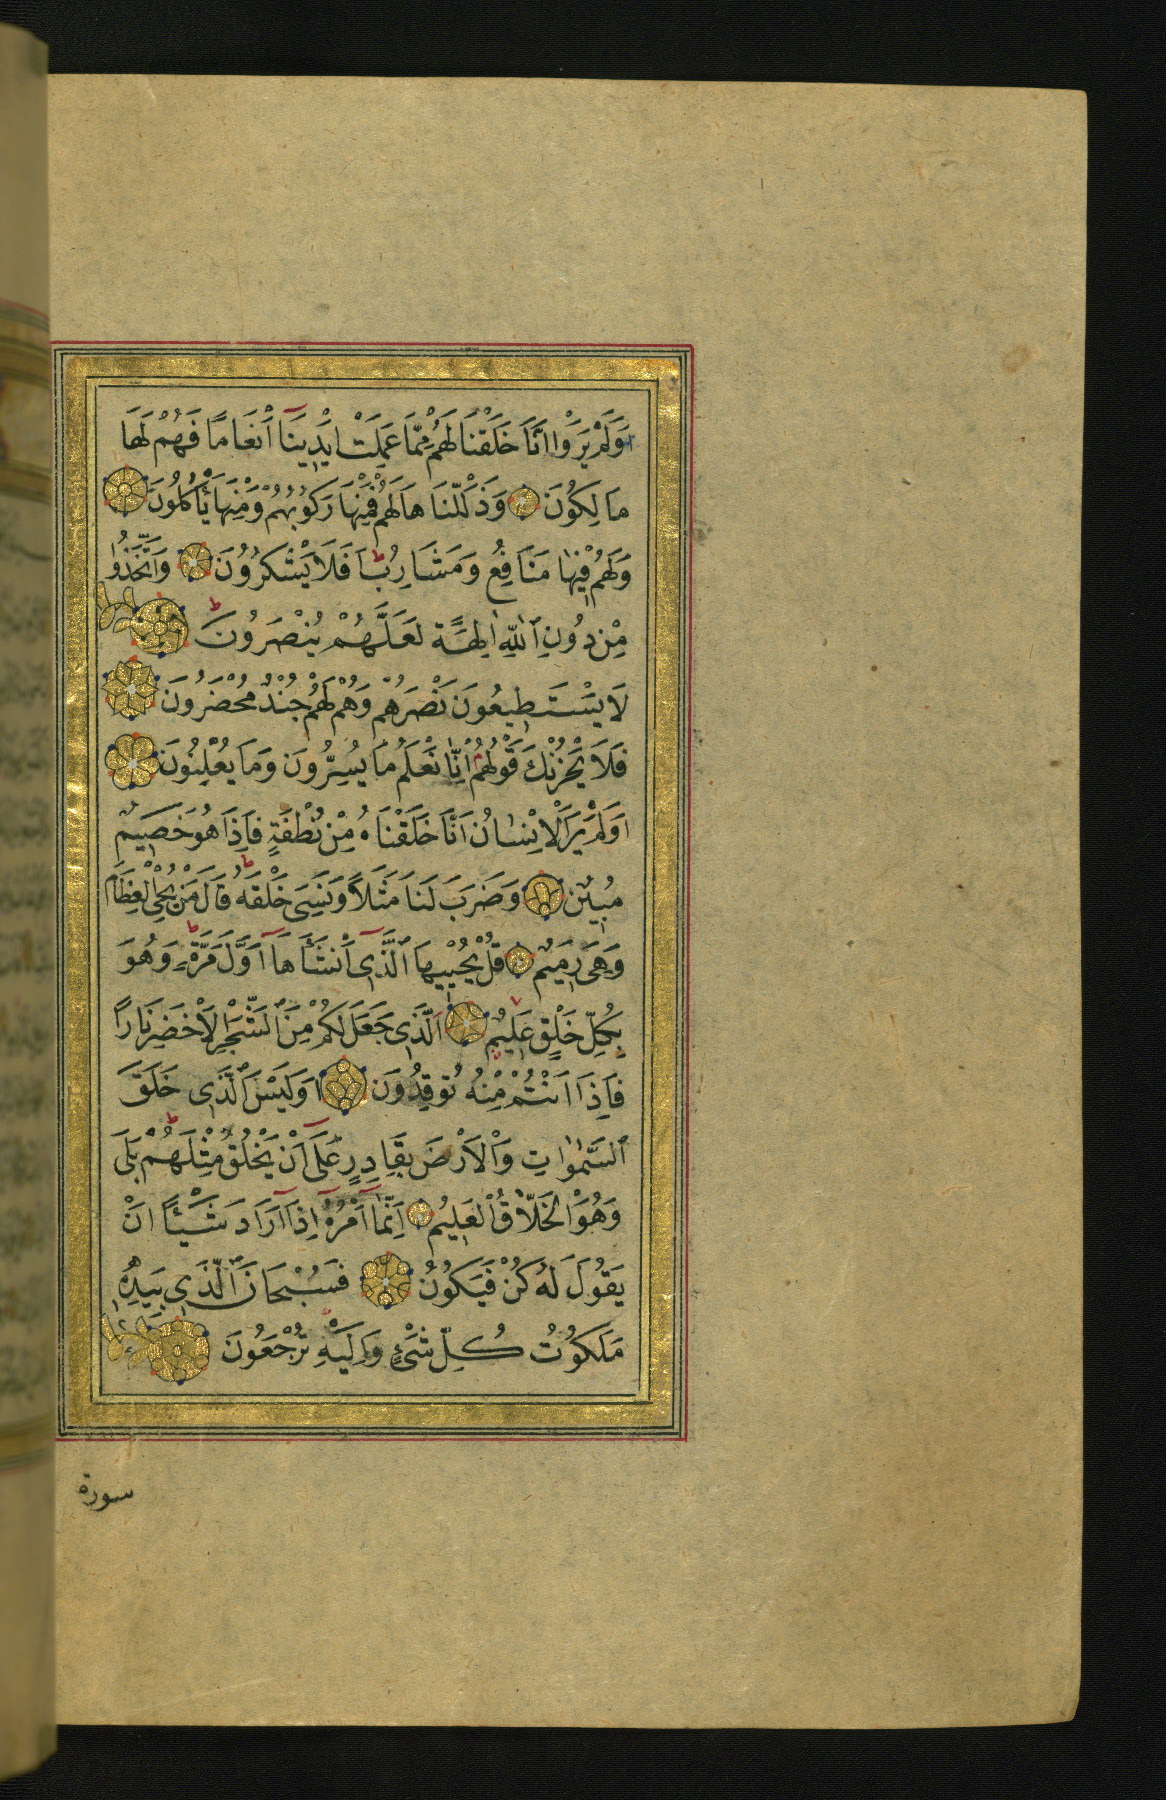 اَوَلَمْ يَرَوْا اَنَّا خَلَقْنَا لَهُمْ مِمَّا عَمِلَتْ اَيْدِينَا اَنْعَامًا فَهُمْ لَهَا
مَالِكُونَ وَذَلَّلْنَاهَا لَهُمْ فَمِنْهَا رَكُوبُهُمْ وَمِنْهَا يَأْكُلُونَ
وَلَهُمْ فِيهَا مَنَافِعُ وَمَشَارِبُ اَفَلَا يَشْكُرُونَ وَاتَّخَذُوا
مِنْ دُونِ اللّٰهِ اٰلِهَةً لَعَلَّهُمْ يُنْصَرُونَ
لَا يَسْتَطِيعُونَ نَصْرَهُمْ وَهُمْ لَهُمْ جُنْدٌ مُحْضَرُونَ
فَلَا يَحْزُنْكَ قَوْلُهُمْ اِنَّا نَعْلَمُ مَا يُسِرُّونَ وَمَا يُعْلِنُونَ
اَوَلَمْ يَرَ الْاِنْسَانُ اَنَّا خَلَقْنَاهُ مِنْ نُطْفَةٍ فَاِذَا هُوَ خَصِيمٌ
مُبِينٌ وَضَرَبَ لَنَا مَثَلًا وَنَسِيَ خَلْقَهُ قَالَ مَنْ يُحْيِ الْعِظَامَ
وَهِيَ رَمِيمٌ قُلْ يُحْيِيهَا الَّذِي اَنْشَأَهَا اَوَّلَ مَرَّةٍ وَهُوَ
بِكُلِّ خَلْقٍ عَلِيمٌ اَلَّذِي جَعَلَ لَكُمْ مِنَ الشَّجَرِ الْاَخْضَرِ نَارًا
فَاِذَا اَنْتُمْ مِنْهُ تُوقِدُونَ اَوَلَيْسَ الَّذِي خَلَقَ
السَّمٰوَاتِ وَالْاَرْضَ بِقَادِرٍ عَلَى اَنْ يَخْلُقَ مِثْلَهُمْ بَلَى
وَهُوَ الْخَلَّاقُ الْعَلِيمُ اِنَّمَا اَمْرُهُ اِذَا اَرَادَ شَيْئًا اَنْ
يَقُولَ لَهُ كُنْ فَيَكُونُ فَسُبْحَانَ الَّذِي بِيَدِهِ
مَلَكُوتُ كُلِّ شَيْءٍ وَاِلَيْهِ تُرْجَعُونَ
سورة